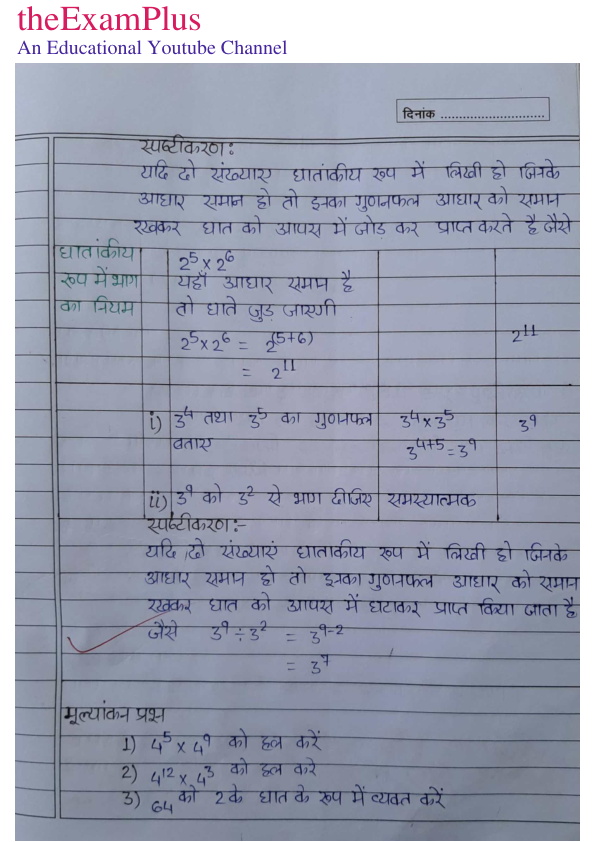 theExamPlus
An Educational Youtube Channel
दिनांक ............................
स्पष्टीकरण:
यदि दो संख्याए घातांकीय रूप में लिखी हो जिनके
आधार समान हो तो इनका गुणनफल आधार को समान
रखकर घात को आपस में जोड़ कर प्राप्त करते है जैसे
घातांकीय
रूप में भाग
का नियम
2⁵ x 2⁶
यहाँ आधार समान है
तो घाते जुड़ जाएगी
2⁵ x 2⁶ = 2⁽⁵⁺⁶⁾ 2¹¹
= 2¹¹
i) 3⁴ तथा 3⁵ का गुणनफल 3⁴ x 3⁵ 3⁹
बताए 3⁴⁺⁵ = 3⁹
ii) 3⁹ को 3² से भाग दीजिए समस्यात्मक
स्पष्टीकरण:-
यदि दो संख्याएं घाताकीय रूप में लिखी हो जिनके
आधार समान हो तो इनका गुणनफल आधार को समान
रखकर घात को आपस में घटाकर प्राप्त किया जाता है
जैसे 3⁹ ÷ 3² = 3⁹⁻²
= 3⁷
मूल्यांकन प्रश्न
1) 4⁵ x 4⁹ को हल करें
2) 4¹² x 4³ को हल करे
3) 64 को 2 के घात के रूप में व्यक्त करें